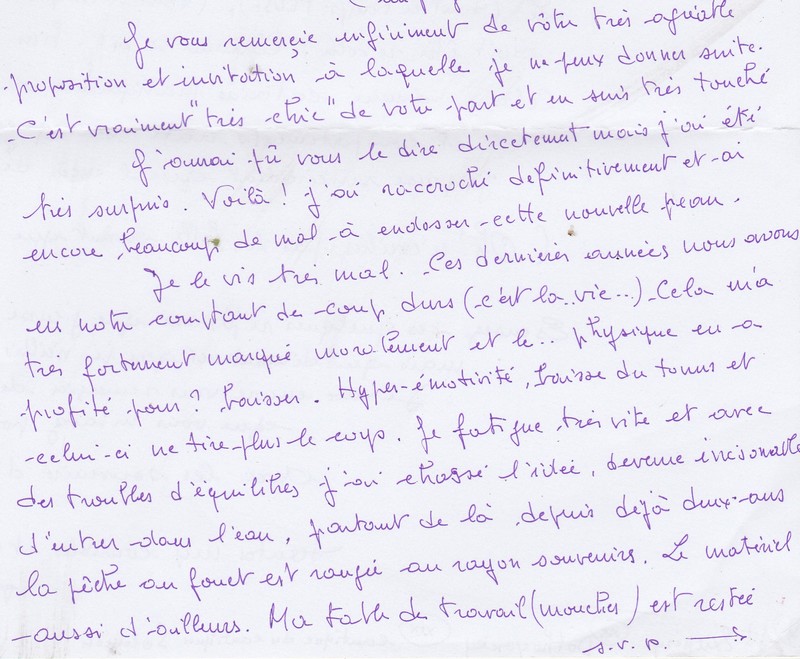 Je vous remerçie infiniment de vôtre très agréable
proposition et invitation à laquelle je ne peux donner suite.
C'est vraiment "très chic" de votre part et en suis très touché
J'aurai pû vous le dire directement mais j'ai été
très surpris. Voilà ! j'ai raccroché definitivement et ai
encore beaucoup de mal à endosser cette nouvelle peau.
Je le vis très mal. Ces dernières années nous avons
eu notre comptant de coup durs (c'est la vie...) Cela m'a
très fortement marqué moralement et le .. physique en a
profité pour ? baisser. Hyper-émotivité, baisse du tonus et
celui-ci ne tire plus le corps. Je fatigue très vite et avec
des troubles d'équilibres j'ai chassé l'idée, devenue
d'entrer dans l'eau, partant de là depuis dejà deux ans
la pêche au fouet est rangée au rayon souvenirs. Le matériel
aussi d'ailleurs. Ma table de travail (mouches) est restée
s.v.p. →